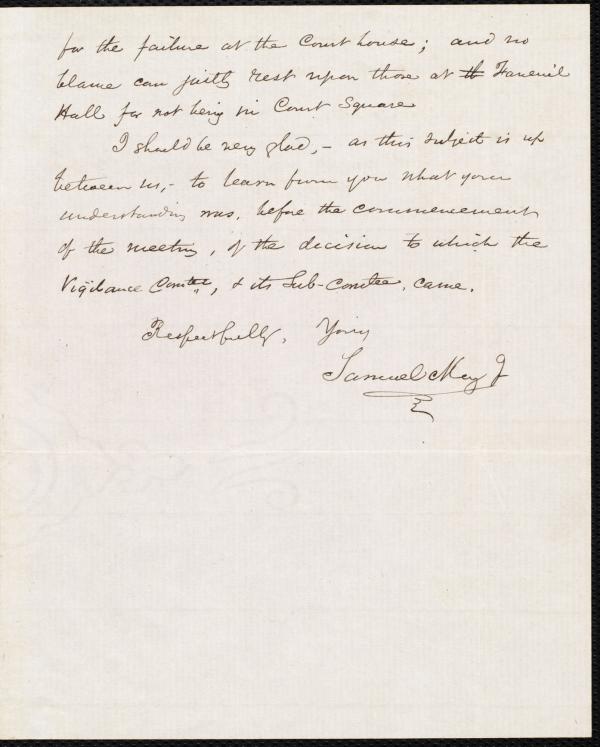 for the failure at the Court house; and no
blame can justly rest upon those at th Faneuil
Hall for not being in Court Square
I should be very glad, - as this subject is up
between us, - to learn from you what your
understanding was, before the commencement
of the meeting, of the decision to which the
Vigilance Comtee, & its Sub-comtee, came.
Respectfully, Yours
Samuel May Jr